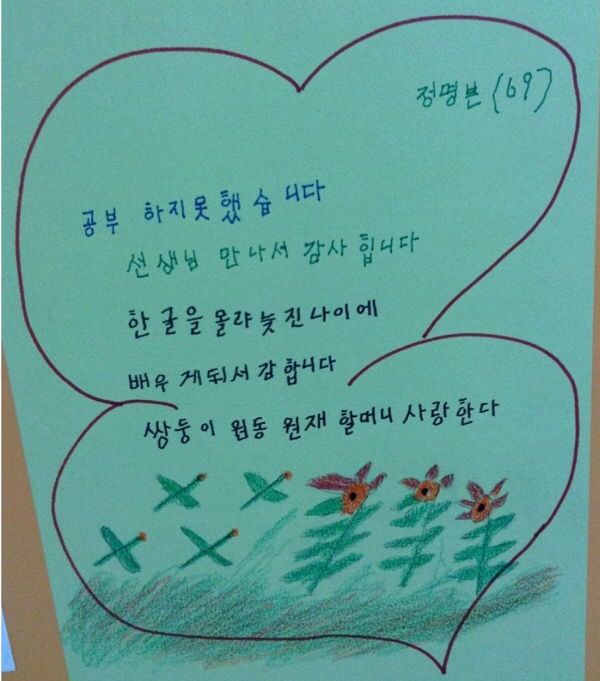 정명분 (69)
공부 하지못했습니다
선생님 만나서 감사 힙니다
한글을 몰라 늦진나이에
배우 게둬서 감합니다
쌍둥이 원동 원재 할머니 사랑한다